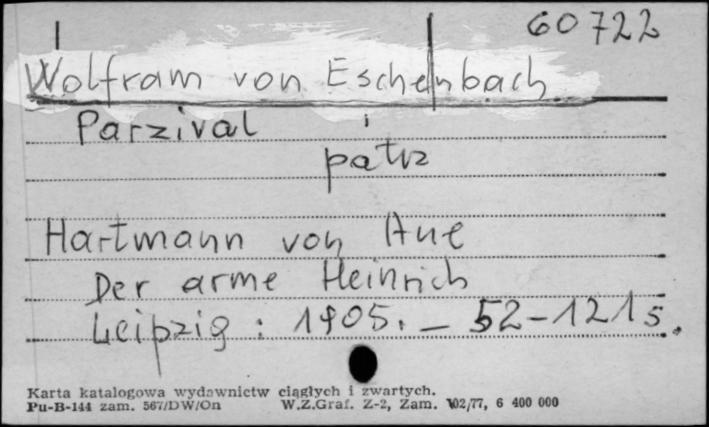 60722
Wolfram von Eschenbach
Parzival
patrz
Hartmann von Aue
Der arme Heinrich
Leipzig : 1905. – 52-121 s.
Karta katalogowa wydawnictw ciągłych i zwartych.
Pu-B-144 zam. 567/DW/On W.Z.Graf. Z-2, Zam. 102/77, 6 400 000